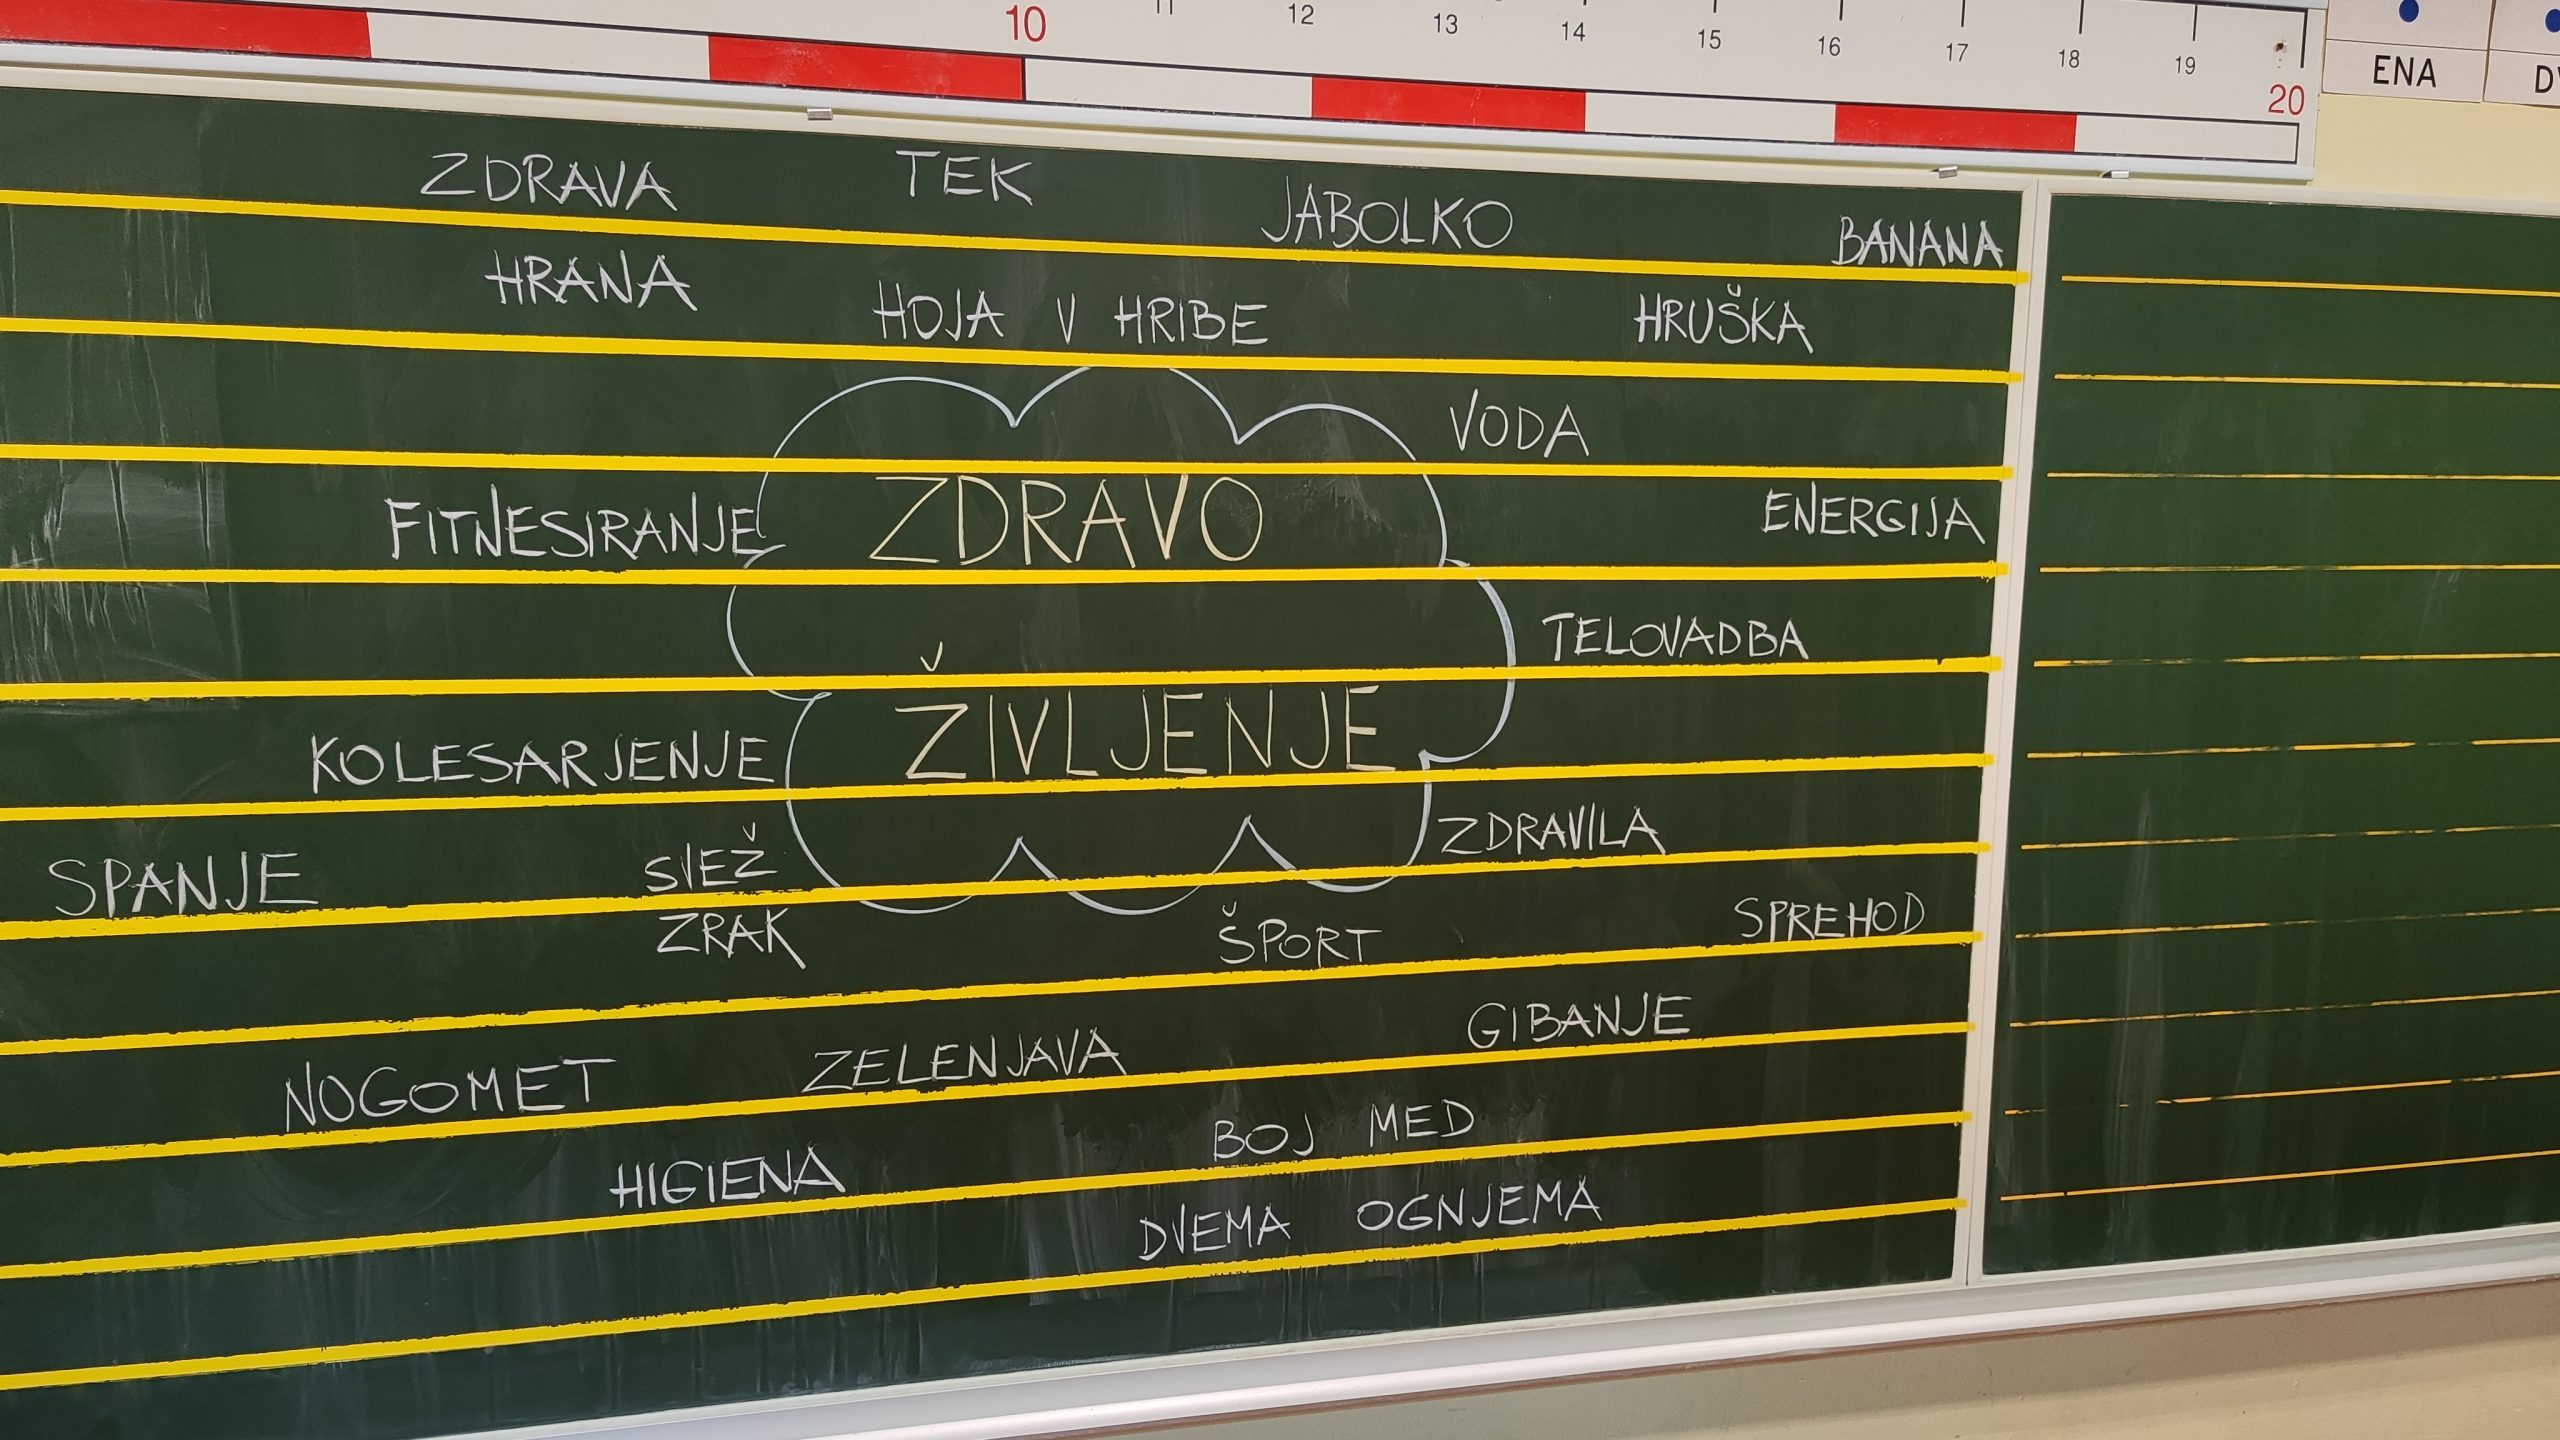 10 11 12 13 14 15 16 17 18 19 20
ENA
ZDRAVA
HRANA
TEK
JABOLKO
BANANA
HOJA V HRIBE
HRUŠKA
VODA
FITNESIRANJE
ZDRAVO
ŽIVLJENJE
ENERGIJA
TELOVADBA
KOLESARJENJE
ZDRAVILA
SPANJE
SVEŽ
ZRAK
ŠPORT
SPREHOD
NOGOMET
ZELENJAVA
GIBANJE
HIGIENA
BOJ MED
DVEMA OGNJEMA